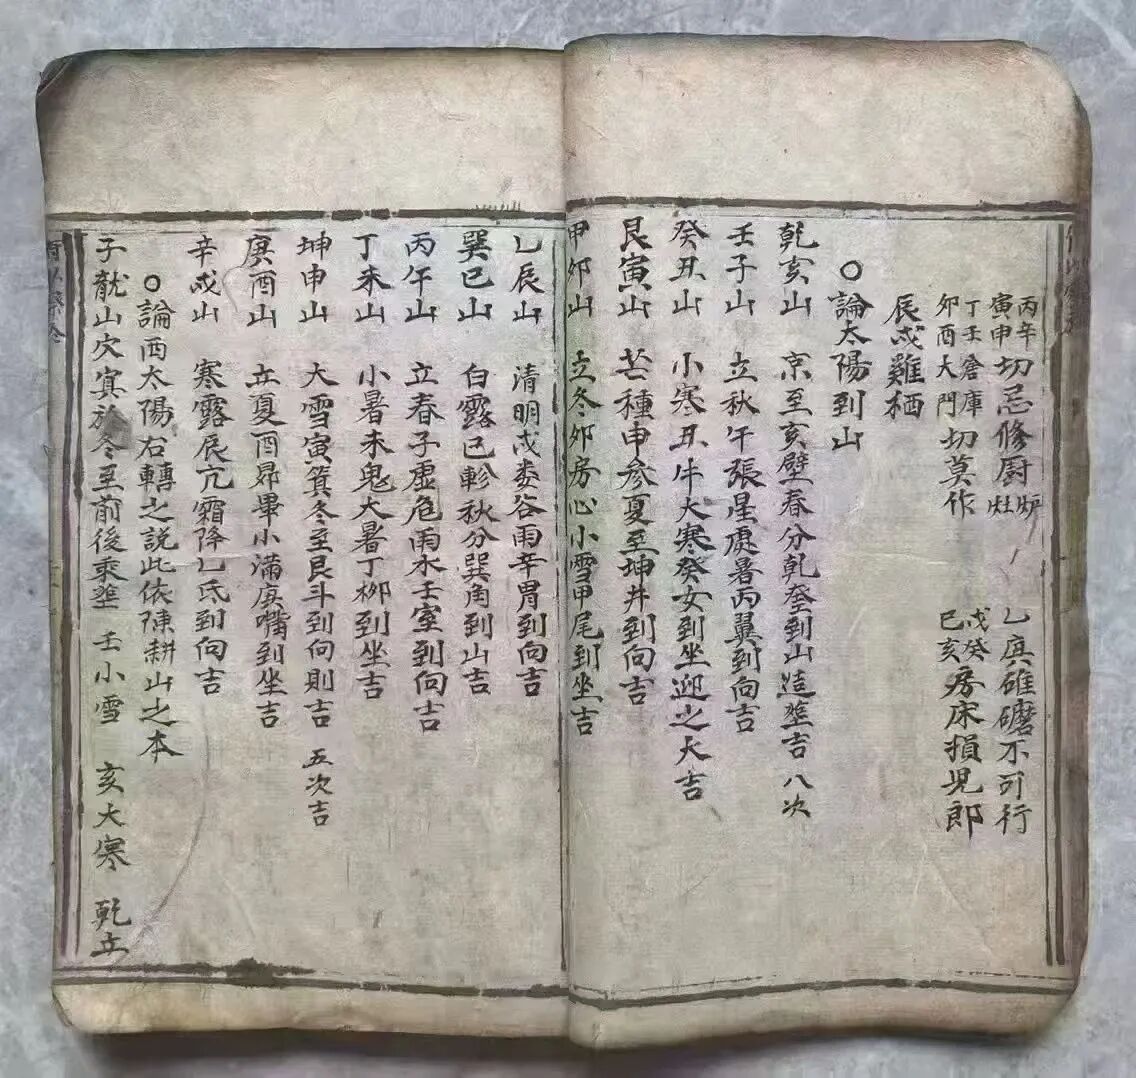 丙辛寅申切忌修厨炉灶 乙庚碓磨不可行
丁壬倉庫卯酉大門切莫作 戊癸巳亥房床損児郎
辰戌雞栖
○論太陽到山
乾亥山 京至亥壁春分乾奎到山造塟吉 八次
壬子山 立秋午張星處暑丙翼到向吉
癸丑山 小寒丑牛大寒癸女到坐迎之大吉
艮寅山 芒種申参夏至坤井到向吉
甲卯山 立冬卯房心小雪甲尾到坐吉
乙辰山 清明戌娄谷雨辛胃到向吉
巽巳山 白露巳軫秋分巽角到山吉
丙午山 立春子虛危雨水壬室到向吉
丁未山 小暑未鬼大暑丁柳到坐吉
坤申山 大雪寅箕冬至艮斗到向則吉 五次吉
庚酉山 立夏酉昴畢小滿庚嘴到坐吉
辛戌山 寒露辰亢霜降乙氐到向吉
○論酉太陽右轉之説此依陳耕山之本
子龍山穴寅於冬至前後乘塟 壬小雪 亥大寒 乾立